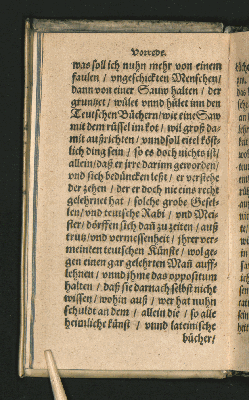 Vorrede.
was soll ich nuhn mehr von einem
faulen / vngeschickten Menschen /
dann von einer Sauw halten / der
gruntzet / wület vnnd hület inn den
Teutschen Büchern / wie eine Saw
mit dem rüssel im kot / wil groß da-
mit außrichten / vnnd soll eitel köst-
lich ding sein / so es doch nichts ist /
allein / daß er irre darinn geworden /
vnd sich bedüncken leßt / er verstehe
der zehen / der er doch nie eins recht
gelehrnet hat / solche grobe Gesel-
len / vnd teutsche Rabi / vnd Mei-
ster / dörffen sich dañ zu zeiten / auß
trutz / vnd vermessenheit / jhrer ver-
meinten teutschen Künste / wol ge-
gen einen gar gelehrten Mañ auff-
lehnen / vnnd jhme das oppositum
halten / daß sie darnach selbst nicht
wissen / wohin auß / wer hat nuhn
schuldt an dem / allein die / so alle
heimliche künst / vnnd lateinische
bücher /